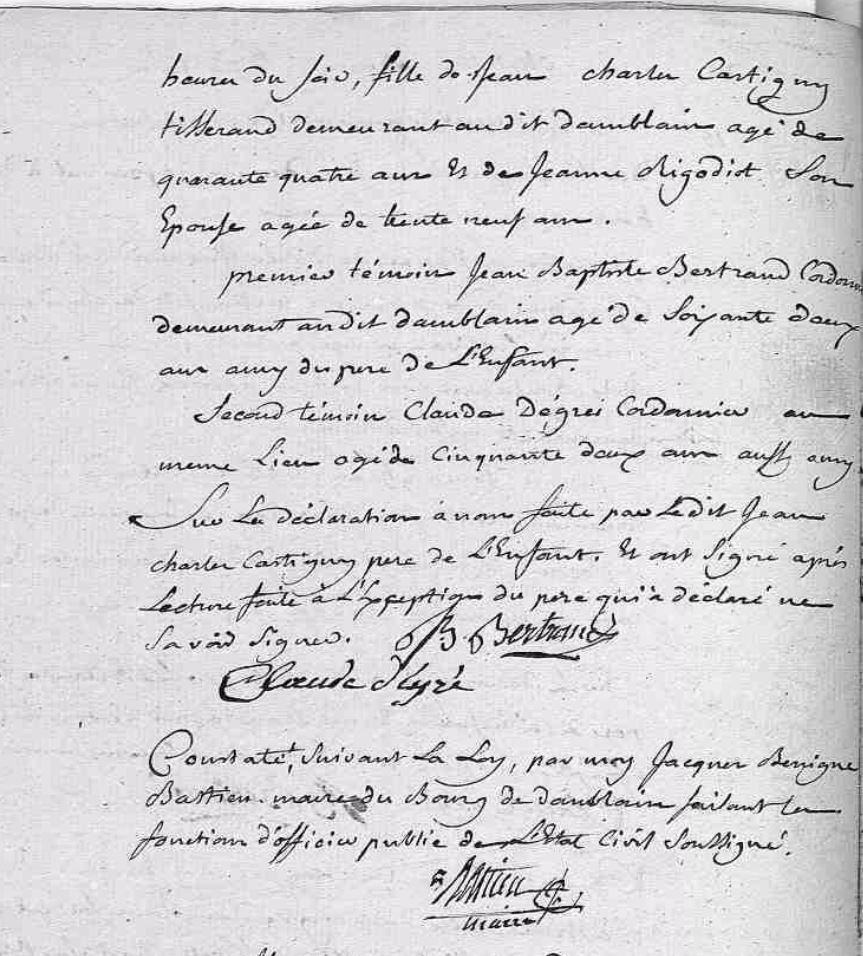 heures du soir, fille de Jean charles Castigny
tisserand demeurant audit damblain agé de
quarante quatre ans Et de Jeanne Rigodiot Son
Epouse agée de trente neuf ans.
premier témoin Jean Baptiste Bertrand Cordonn
demeurant audit damblain agé de Soixante deux
ans amy du pere de L'Enfant.
Second témoin Claude Dégrei Cordonnier au
meme Lieu agé de Cinquante deux ans aussy amy
Sur La déclaration à nous faite par Ledit Jean
charles Castigny pere de L'Enfant. Et ont Signé après
Lecture faite à L'Exception du pere qui a déclaré ne
Savoir Signer. JB Bertrand
Claude
Constaté, Suivant La Loy, par moy Jacques Benigne
Bastien maire du Bourg de damblain faisant les
fonctions d'officier public de L'Etat Civil Soussigné.
Bastien
maire